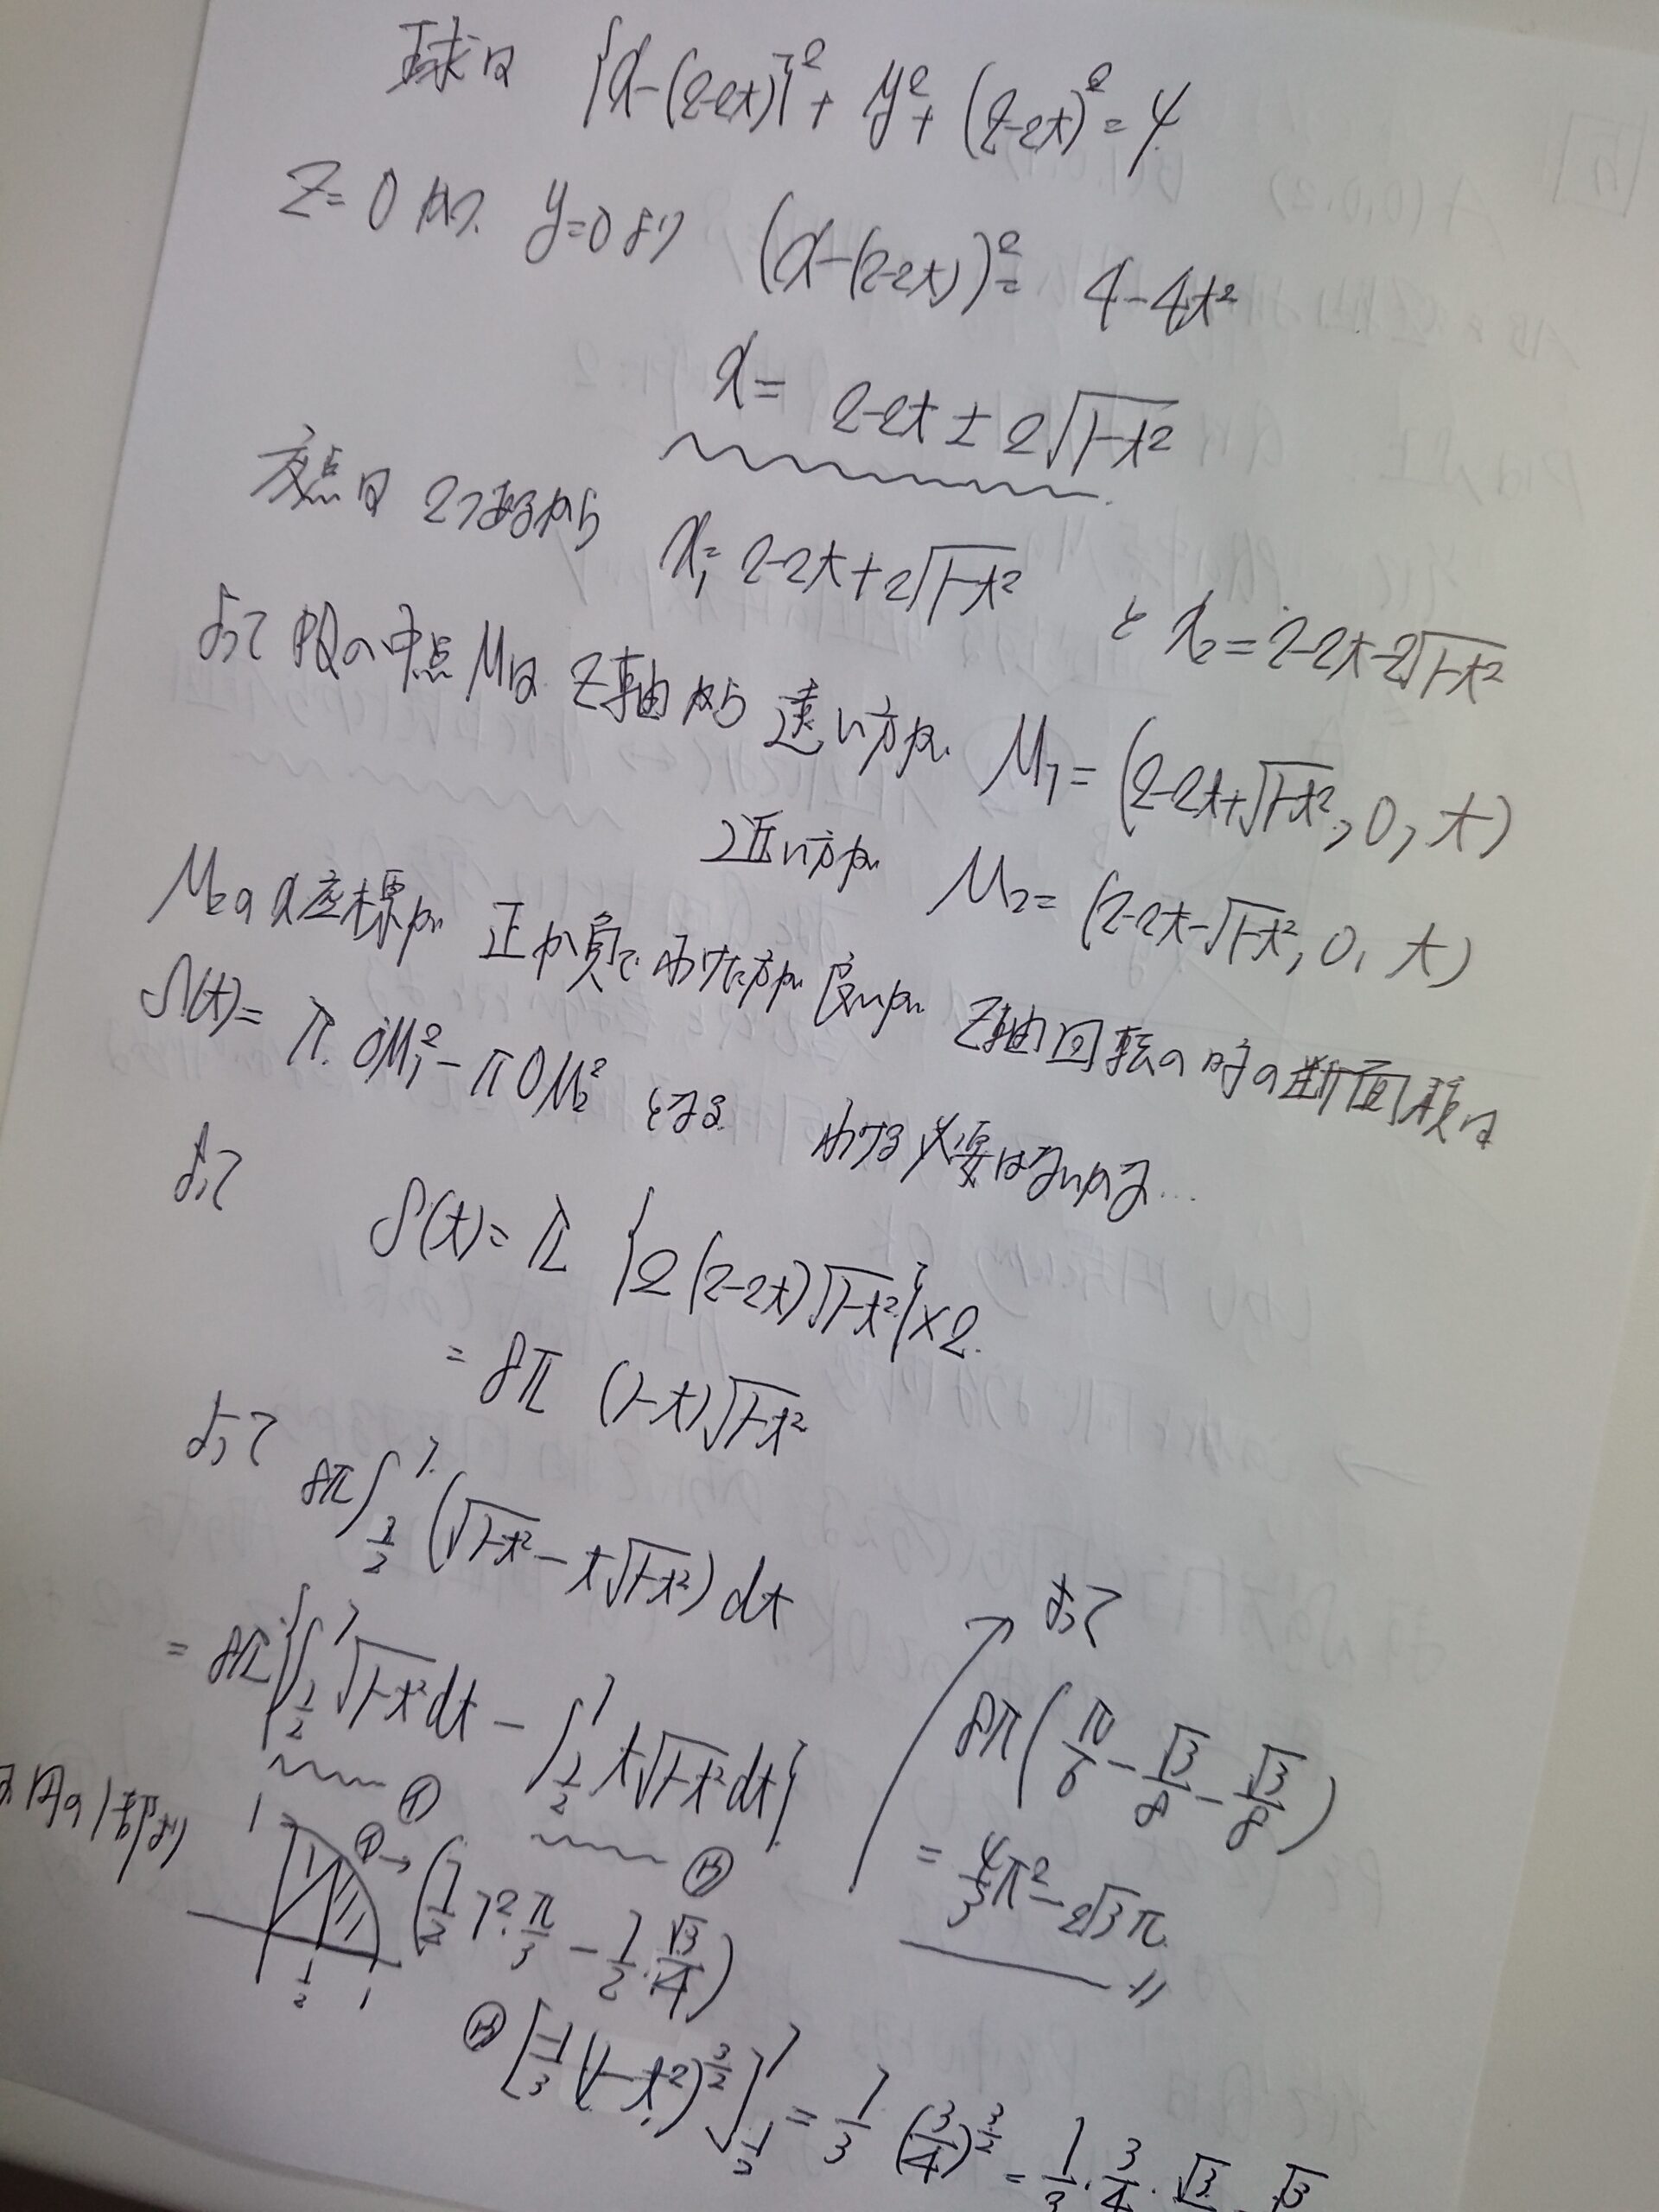 球は {x-(2-2t)}²+y²+(z-2t)²=4
z=0かつ y=0より (x-(2-2t))²= 4-4t²
x= 2-2t±2√1-t²
交点は 2つあるから x₁= 2-2t+2√1-t² と x₂=2-2t-2√1-t²
よって PQの中点Mは z軸から 遠い方が M₁=(2-2t+√1-t², 0, t)
近い方が M₂=(2-2t-√1-t², 0, t)
M₂のx座標が 正か負で わけた方が良いが z軸回転の時の断面積は
S(t)= π・OM₁²-πOM₂² となる わける必要はないかな…
よって
S(t)= π {2(2-2t)√1-t²}×2
= 8π (1-t)√1-t²
よって 8π∫[1/2→1] (√1-t² - t√1-t²) dt
= 8π{∫[1/2→1] √1-t² dt - ∫[1/2→1] t√1-t² dt}
㋑ ㋺
円の1部より
1 1/2 1
㋑→ (1/2・1²・π/3 - 1/2・√3/4)
㋺ [-1/3(1-t²)^(3/2)][1/2→1] = 1/3 (3/4)^(3/2) = 1/3・3/4・√3
よって
8π(π/6 - √3/8 - √3/8)
= 4/3π² - 2√3π